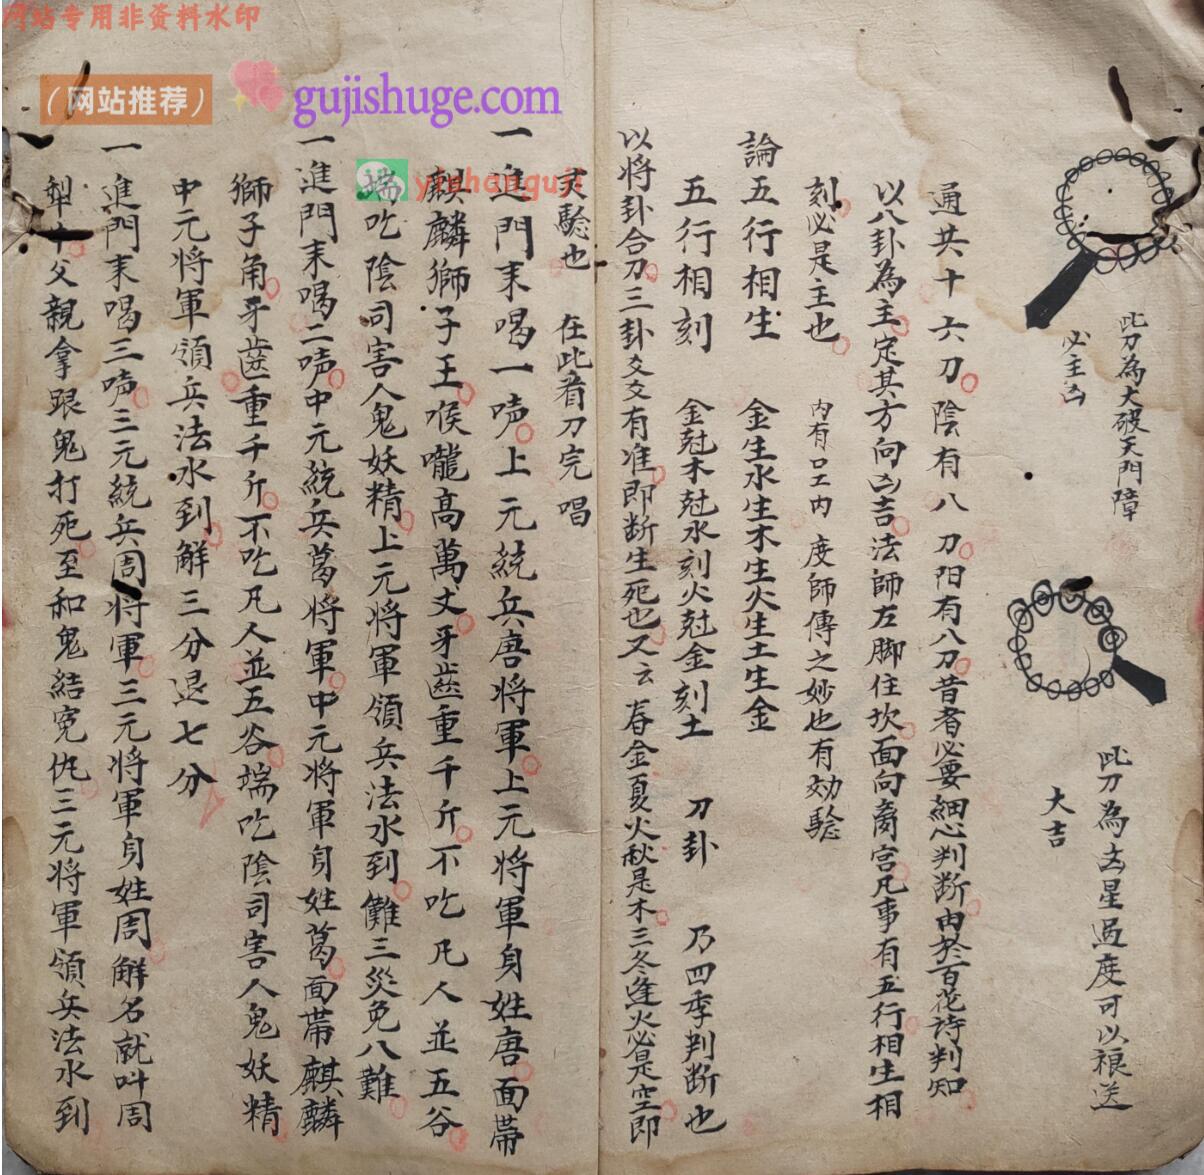 网站专用非资料水印
（网站推荐）
gujishuge.com
yizhanguji
此刀為大破天門障
必主凶
此刀為凶星過度可以禳送
大吉
通共十六刀陰有八刀阳有八刀昔者必要細心判断由於百花詩判知
以八卦為主定其方向凶吉法師左脚住坎面向离宫凡事有五行相生相
刻必是主也 内有口工内 度師傳之妙也有効驗
論五行相生 金生水生木生火生土生金
五行相刻 金尅木尅水刻火尅金刻土 刀卦 乃四季判断也
以将卦合刀三卦爻爻有准即断生死也又云春金夏火秋是木三冬逢火必是空即
实驗也 在此看刀完唱
一進門来喝一声上元統兵唐将軍上元将軍身姓唐面帶
麒麟獅子王喉嚨高萬丈牙齒重千斤不吃凡人並五谷
端吃陰司害人鬼妖精上元将軍領兵法水到儺三災免八難
一進門来喝二声中元統兵葛将軍中元将軍身姓葛面帶麒麟
獅子角牙齒重千斤不吃凡人並五谷端吃陰司害人鬼妖精
中元将軍領兵法水到解三分退七分
一進門来喝三声三元統兵周将軍三元将軍身姓周解名就叫周
犁十父親拿跟鬼打死至和鬼結寃仇三元将軍領兵法水到